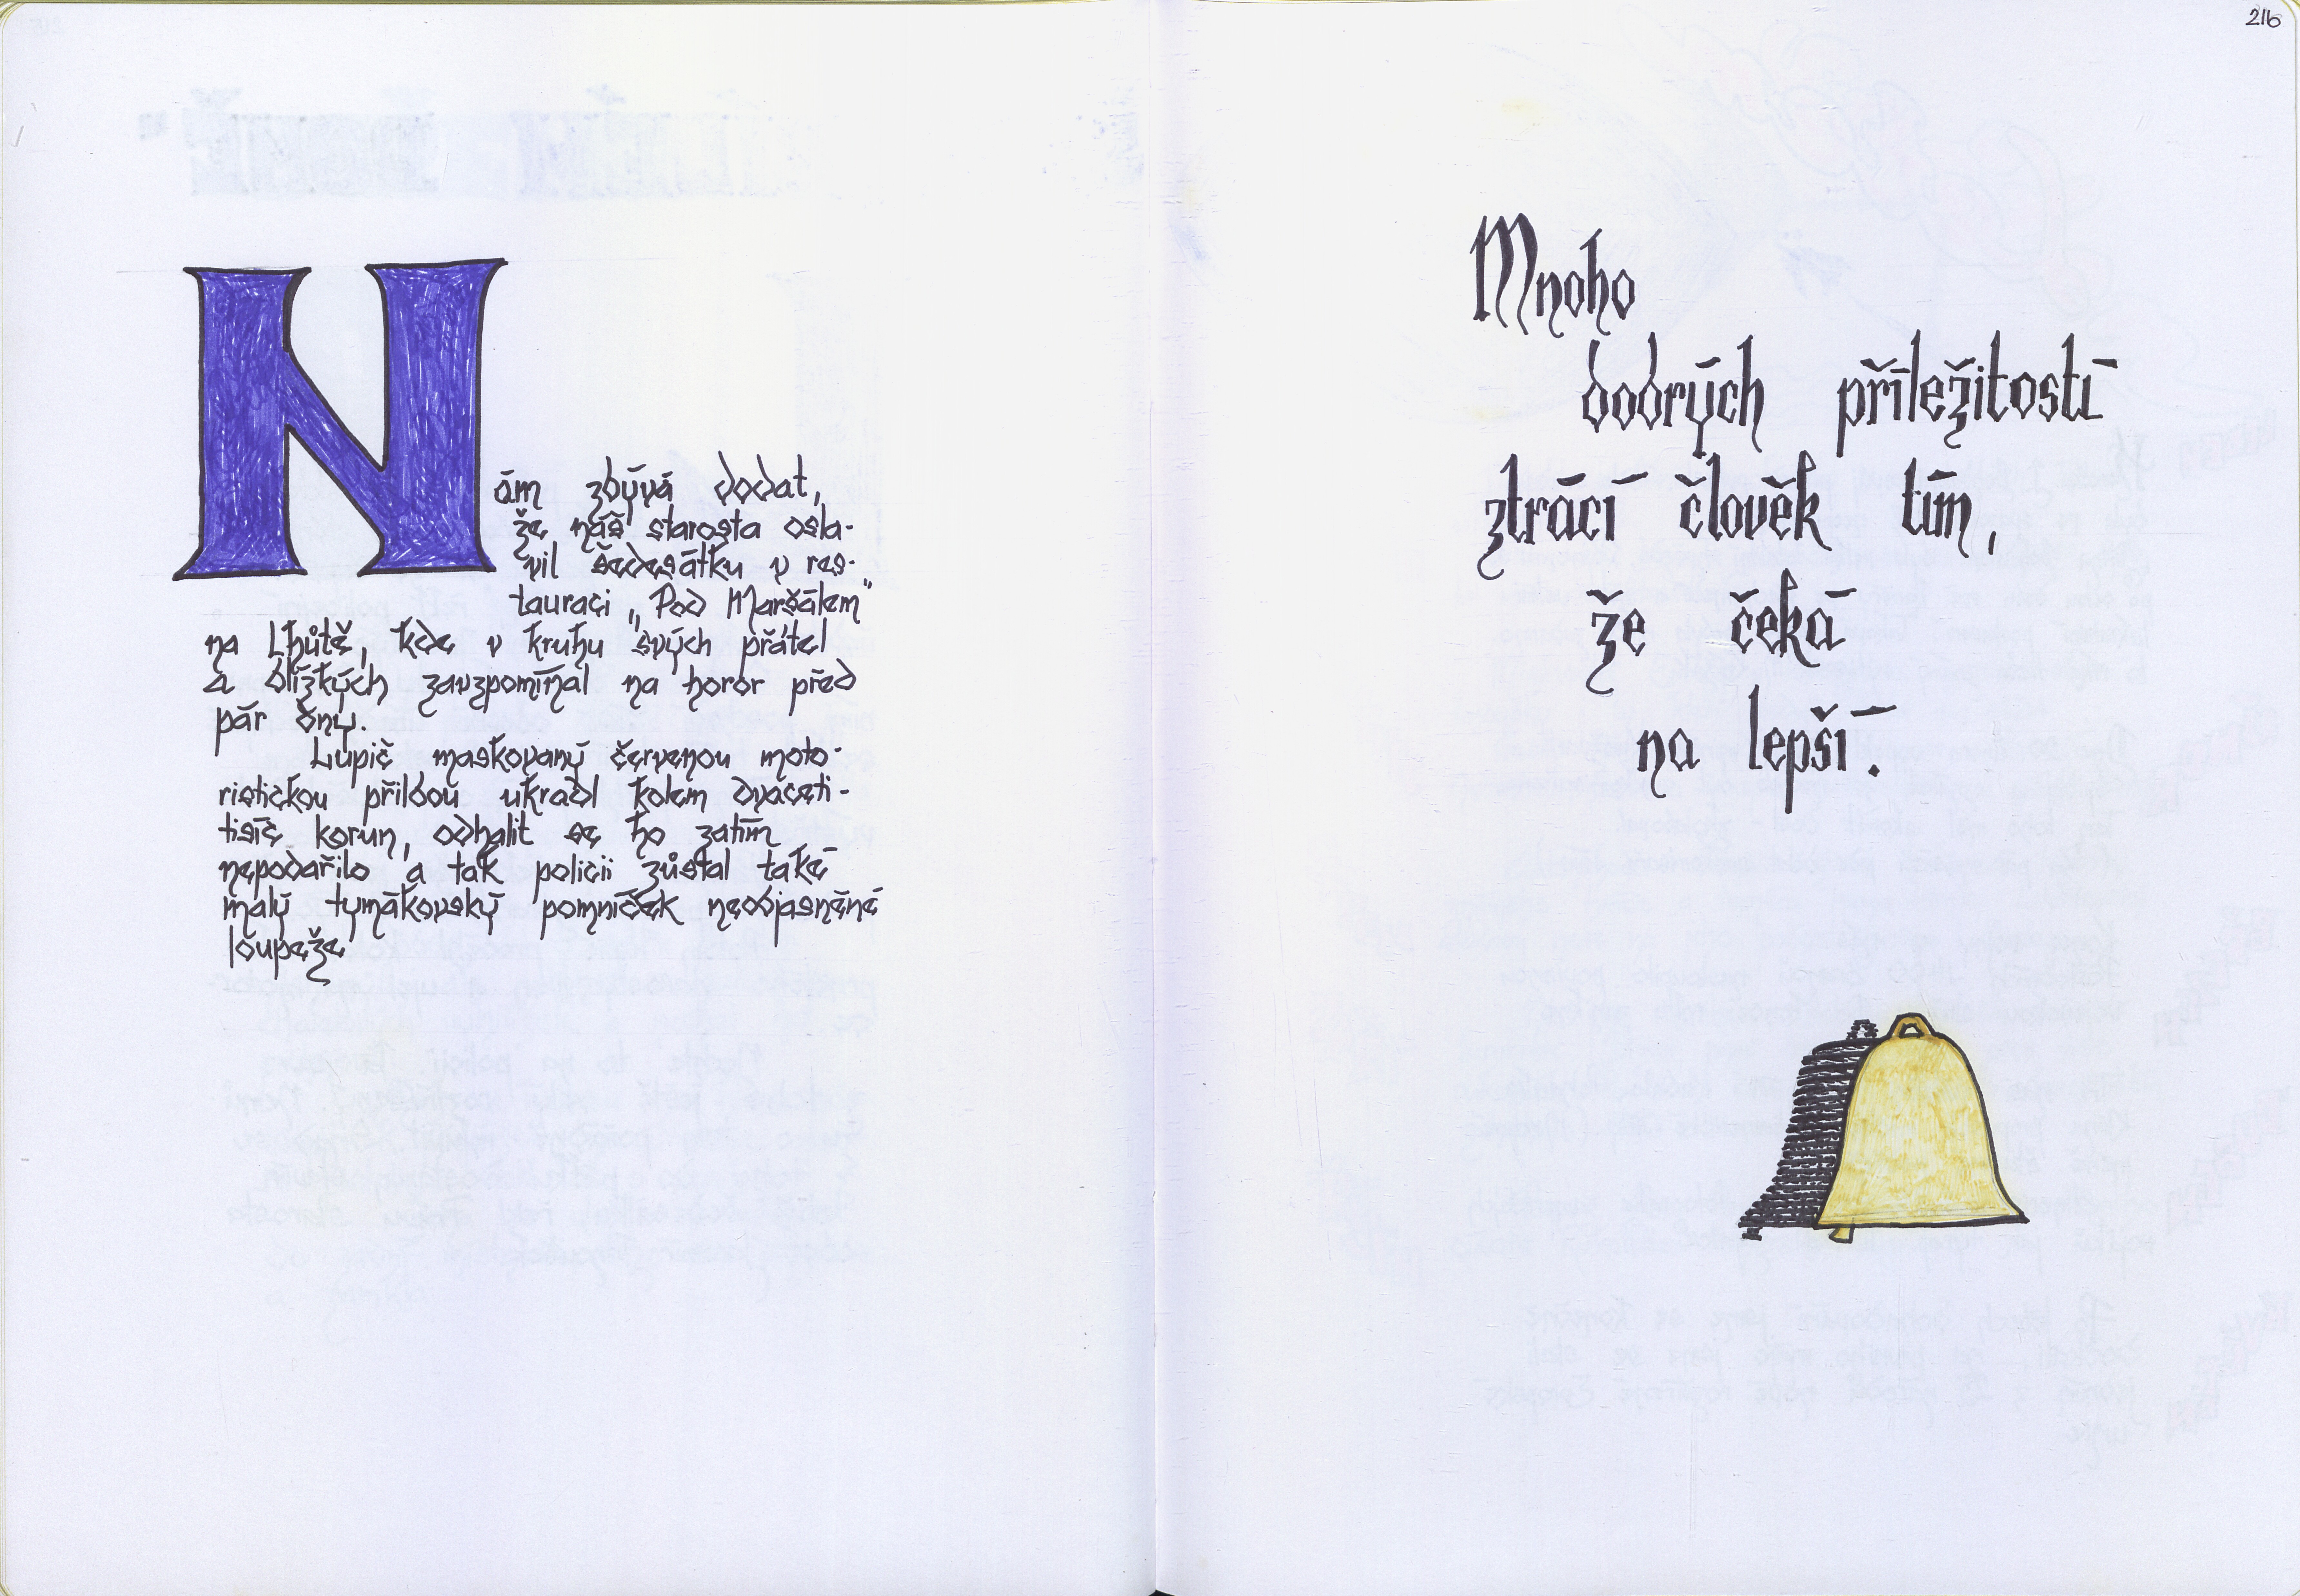 Nám zbývá dodat,
že náš starosta osla-
vil šedesátku v res-
tauraci „Pod Maršálem"
na Lhůtě, kde v kruhu svých přátel
a blízkých zavzpomínal na horor před
pár dny.
Lupič maskovaný červenou moto-
ristickou přilbou ukradl kolem dvaceti-
tisíc korun, odhalit se ho zatím
nepodařilo a tak policii zůstal také
malý tymákovský pomníček neobjasněné
loupeže
216
Mnoho
dobrých příležitostí
ztrácí člověk tím,
že čeká
na lepší.